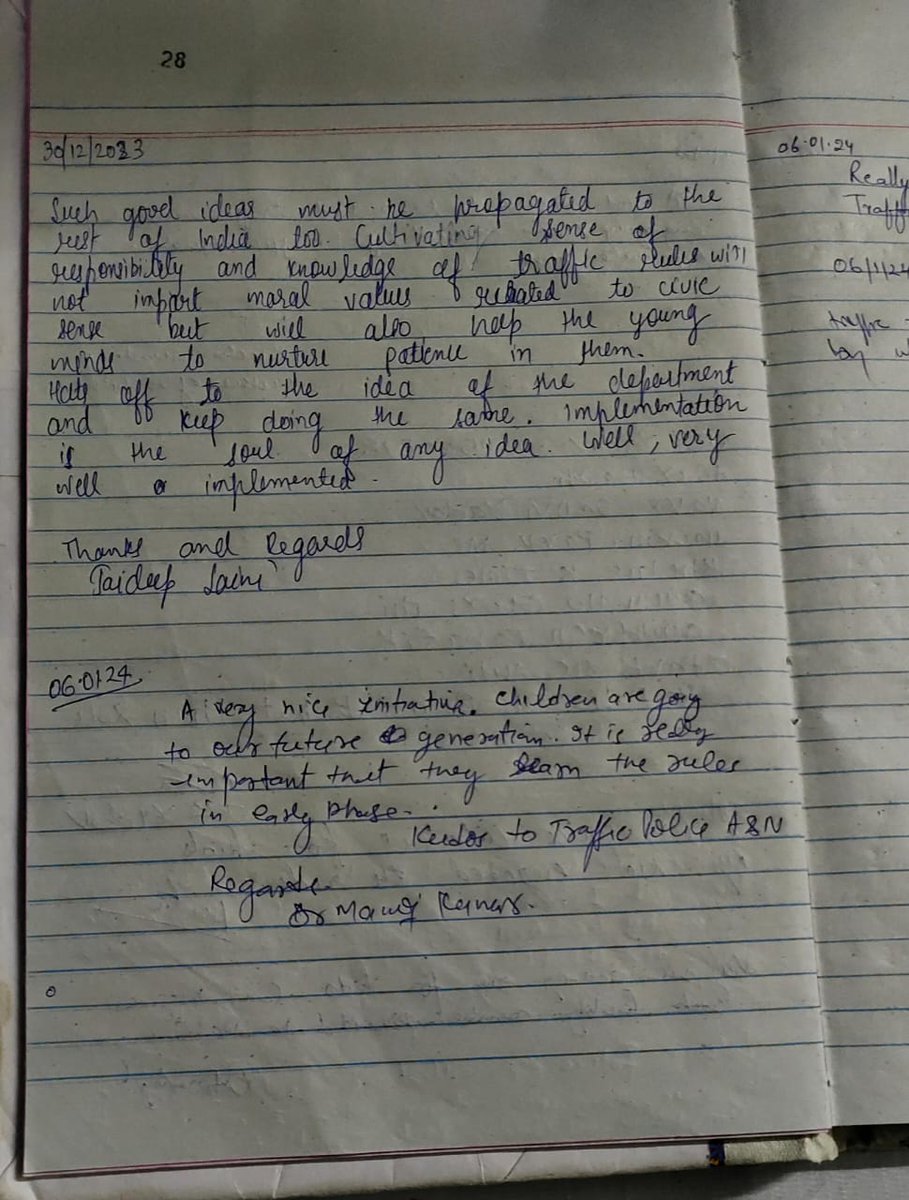 28
30/12/2023
Such good ideas must be propagated to the
rest of India too. Cultivating sense of
responsibility and knowledge of traffic rules will
not impart moral values related to civic
sense but will also help the young
minds to nurture patience in them.
Hats off to the idea of the department
and keep doing the same. Implementation
is the soul of any idea. Well, very
well implemented.
Thanks and Regards
Jaideep Saini
06.01.24
A very nice initiative. Children are going
to our future generation. It is really
important that they learn the rules
in early phase.
Kudos to Traffic Police A&N
Regards
Dr Manoj
06.01.24
Really
Traff
06/1/24
traffic
by